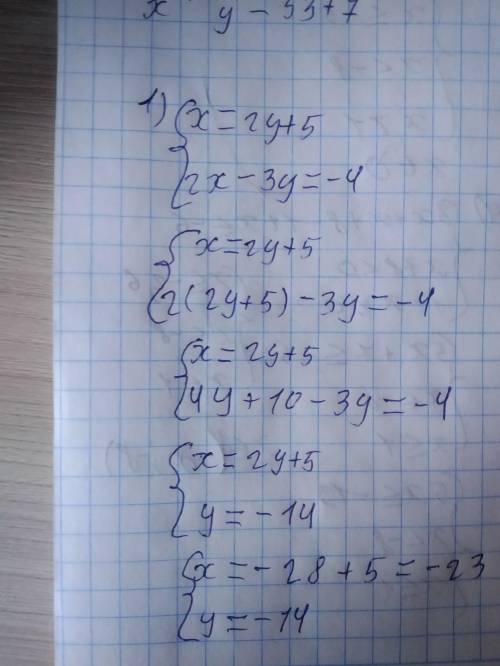 x y - 33+7
1) {x=2y+5
2x-3y=-4
{x=2y+5
2(2y+5)-3y=-4
{x=2y+5
4y+10-3y=-4
{x=2y+5
y=-14
{x=-28+5=-23
y=-14